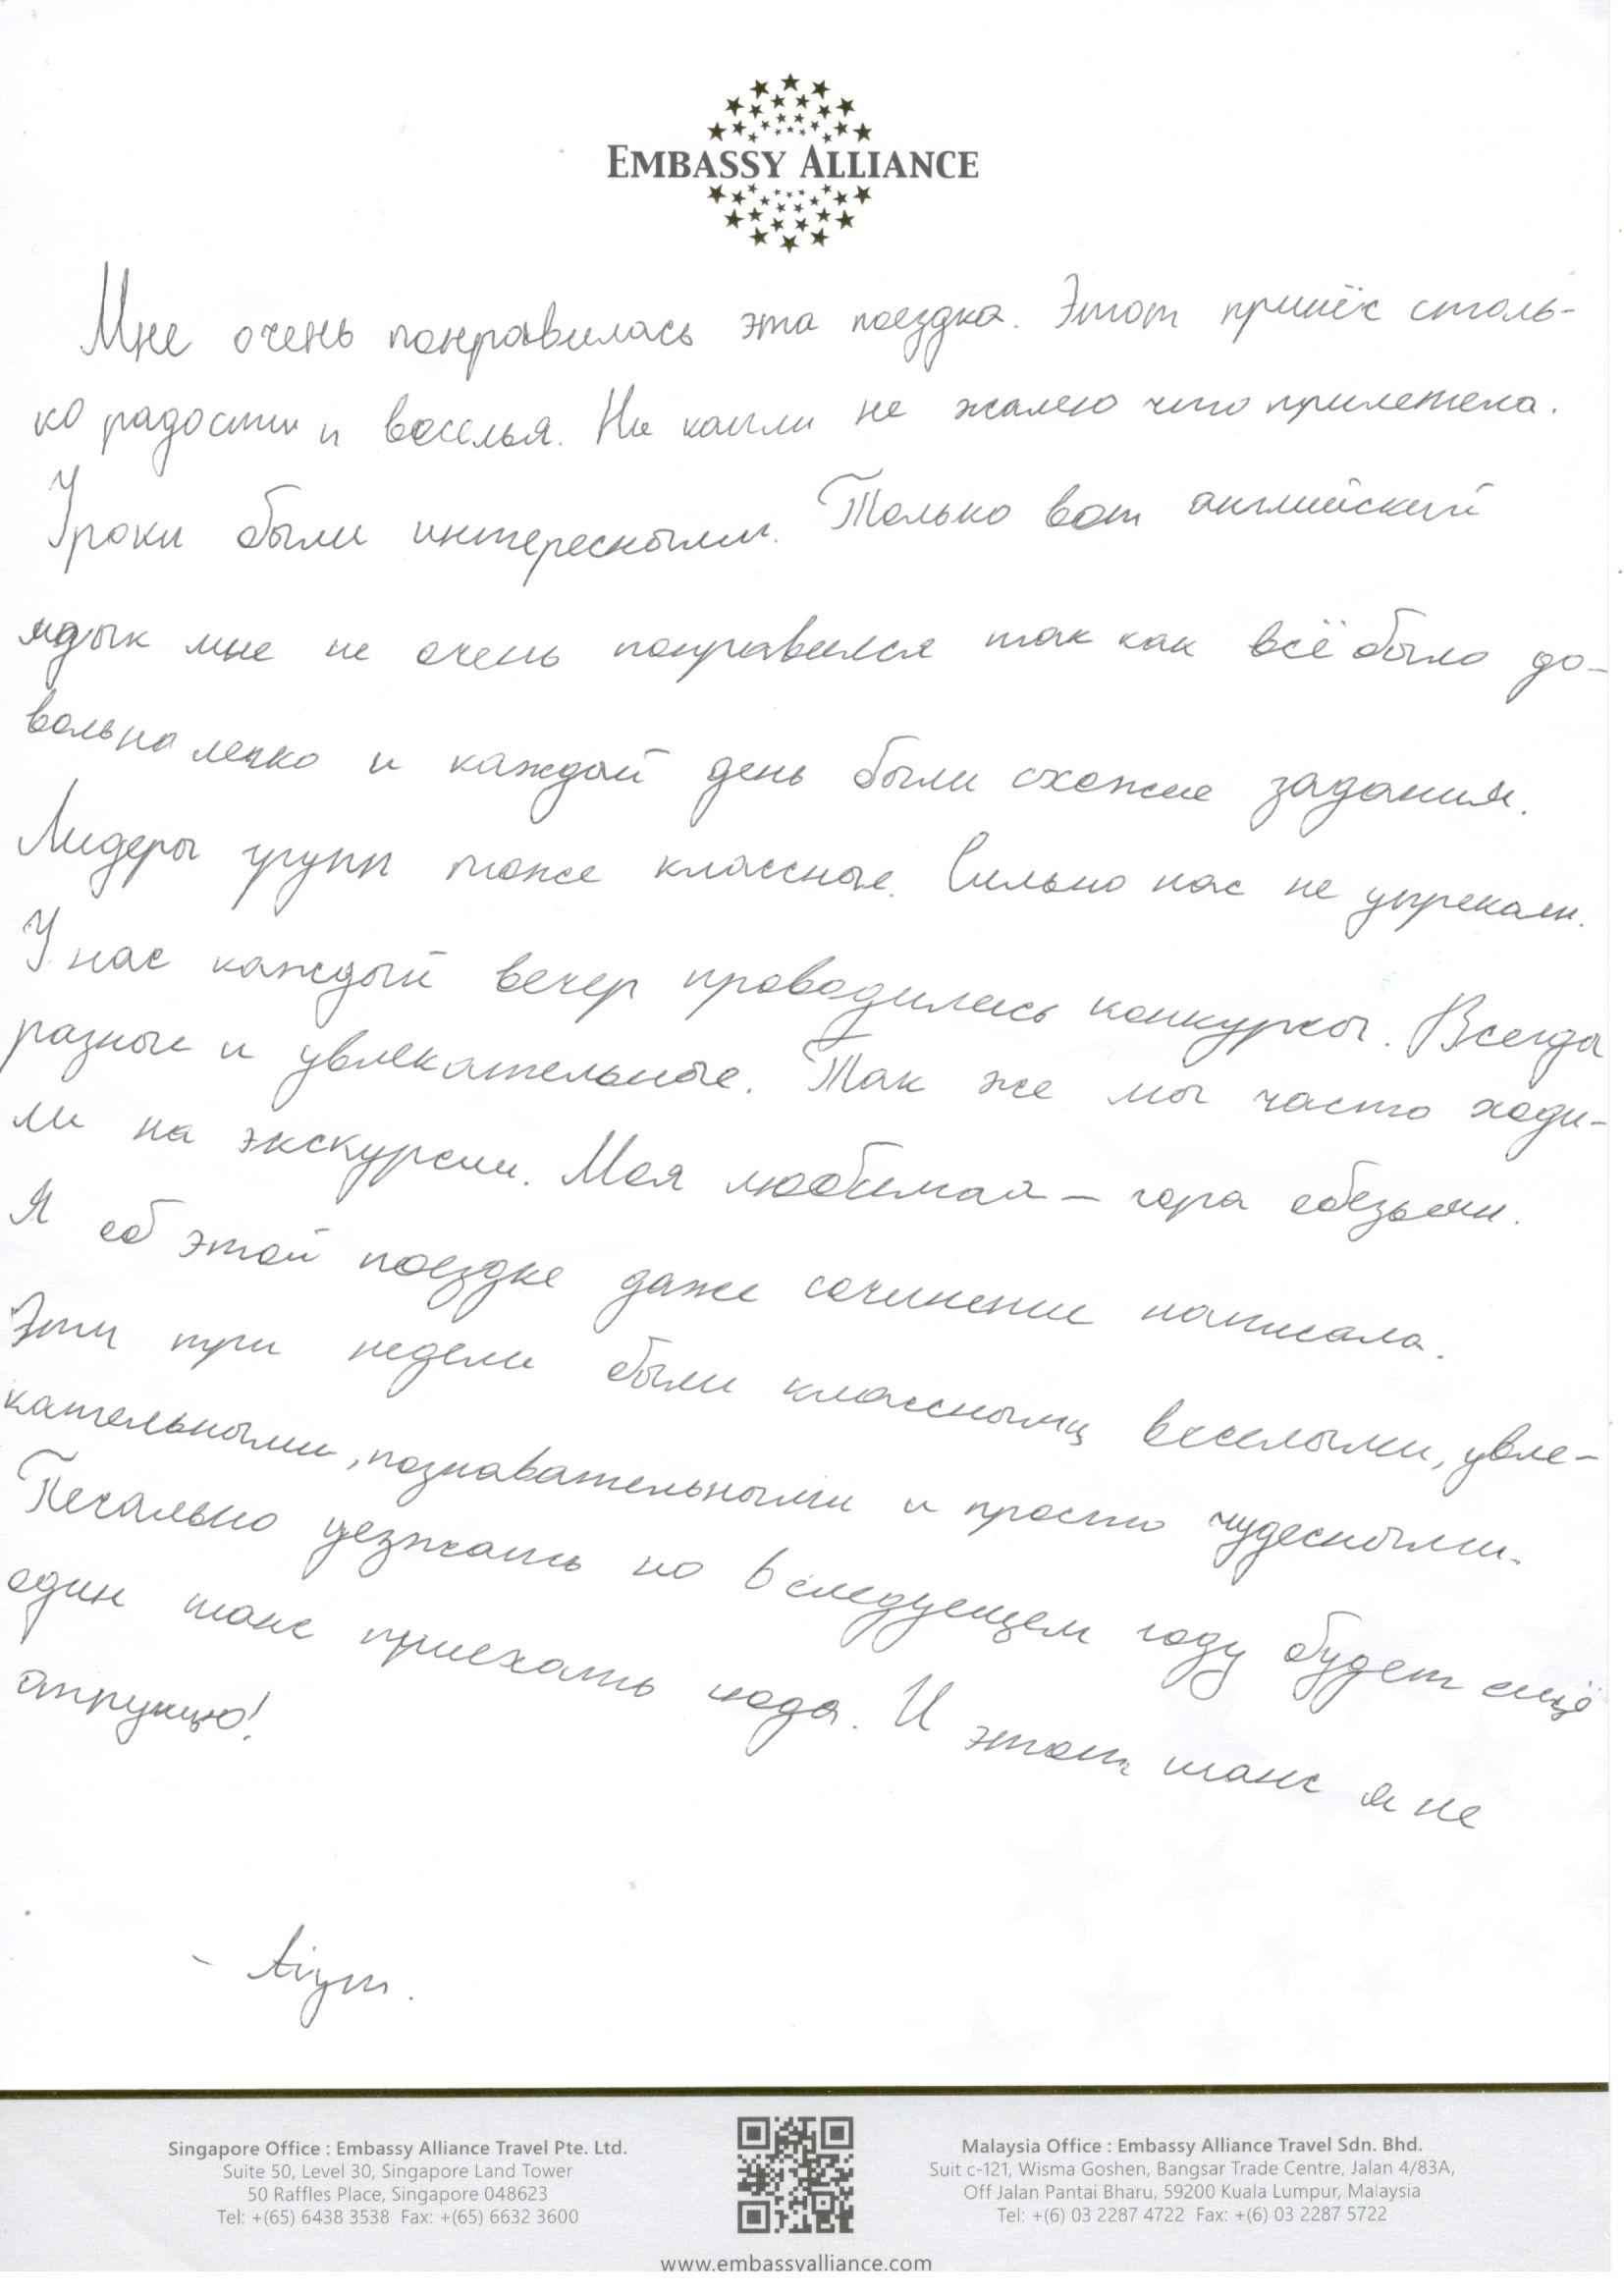 EMBASSY ALLIANCE
Мне очень понравилась эта поездка. Этот принёс столь-
ко радости и веселья. Ни капли не жалею что прилетела.
Уроки были интересными. Только вот английский
язык мне не очень понравился так как всё было до-
вольно легко и каждый день были схожие задания.
Лидеры групп тоже классные. Сильно нас не упрекали.
У нас каждый вечер проводились конкурсы. Всегда
разные и увлекательные. Так же мы часто ходи-
ли на экскурсии. Моя любимая – гора обезьян.
Я об этой поездке даже сочинение написала.
Эти три недели были классными, веселыми, увле-
кательными, познавательными и просто чудесными.
Печально уезжать но в следующем году будет ещё
один шанс приехать сюда. И этот шанс я не
отпущу!
- Aiym.
Singapore Office : Embassy Alliance Travel Pte. Ltd.
Suite 50, Level 30, Singapore Land Tower
50 Raffles Place, Singapore 048623
Tel: +(65) 6438 3538 Fax: +(65) 6632 3600
Malaysia Office : Embassy Alliance Travel Sdn. Bhd.
Suit c-121, Wisma Goshen, Bangsar Trade Centre, Jalan 4/83A,
Off Jalan Pantai Bharu, 59200 Kuala Lumpur, Malaysia
Tel: +(6) 03 2287 4722 Fax: +(6) 03 2287 5722
www.embassyalliance.com